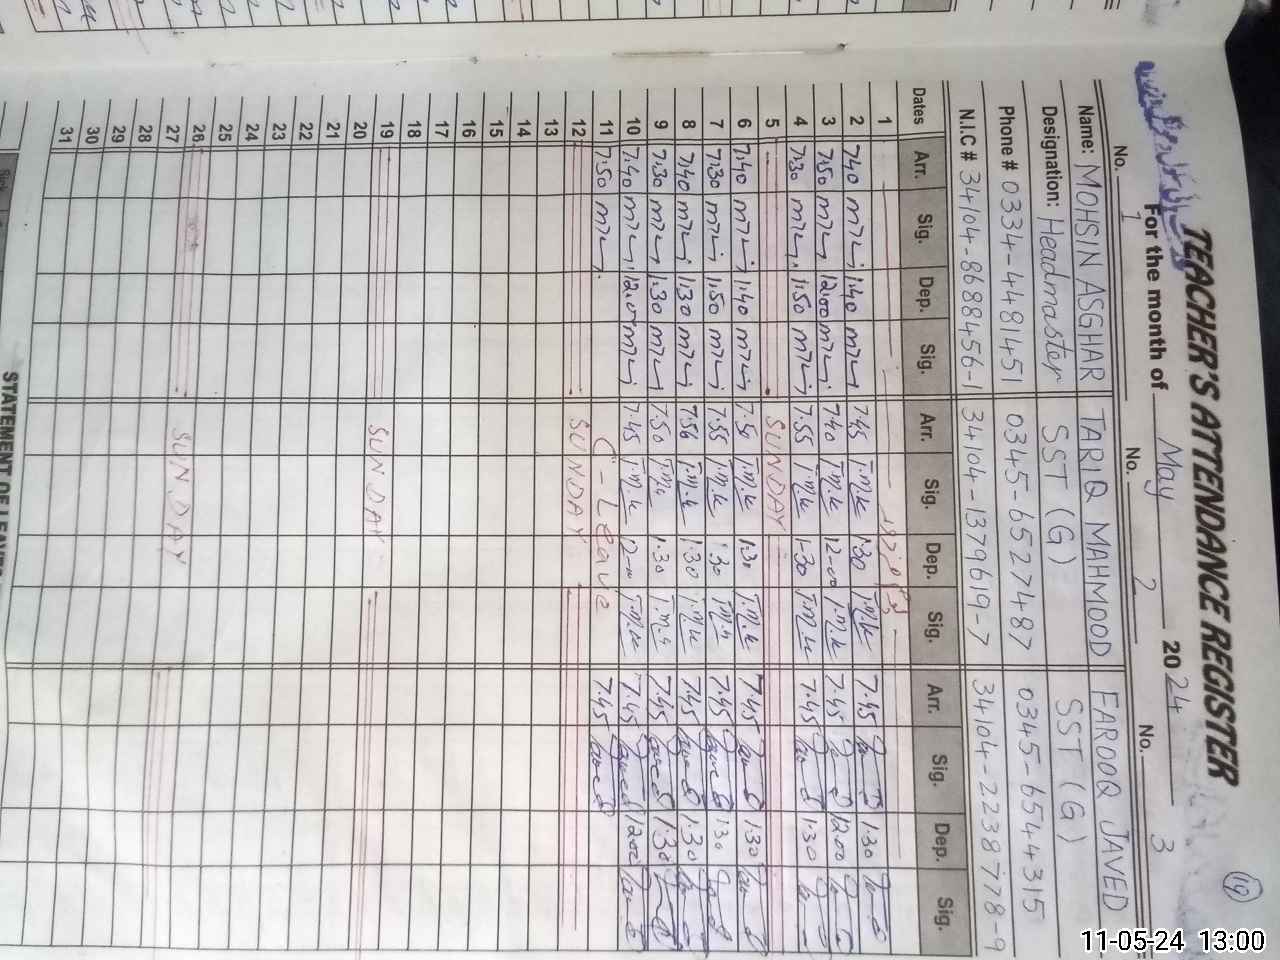 TEACHER'S ATTENDANCE REGISTER
19
For the month of May 2024
No. 1 No. 2 No. 3
Name: MOHSIN ASGHAR TARIQ MAHMOOD FAROOQ JAVED
Designation: Headmaster SST (G) SST (G)
Phone # 0334-4481451 0345-6527487 0345-6544315
N.I.C # 34104-8688456-1 34104-1379619-7 34104-2238778-9
Dates Arr. Sig. Dep. Sig. Arr. Sig. Dep. Sig. Arr. Sig. Dep. Sig.
1
2 7.40 1.40 7.45 T.M.K 1.30 T.M.K 7.45 1.30
3 7.50 12.00 7.40 T.M.K 12-00 T.M.K 7.45 12.00
4 7.30 1.50 7.55 T.M.K 1-30 T.M.K 7.45 1.30
5 SUNDAY
6 7.40 1.40 7.50 T.M.K 1.30 T.M.K 7.45 1.30
7 7.30 1.50 7.55 T.M.K 1.30 T.M.K 7.45 1.30
8 7.40 1.30 7.56 T.M.K 1.30 T.M.K 7.45 1.30
9 7.30 1.30 7.50 T.M.K 1.30 T.M.K 7.45 1.30
10 7.40 12.00 7.45 T.M.K 12-00 T.M.K 7.45 12.00
11 7.50 C-Leave 7.45
12 SUNDAY
13
14
15
16
17
18
19 SUNDAY
20
21
22
23
24
25
26 SUNDAY
27
28
29
30
31
STATEMENT OF LEAVES
11-05-24 13:00